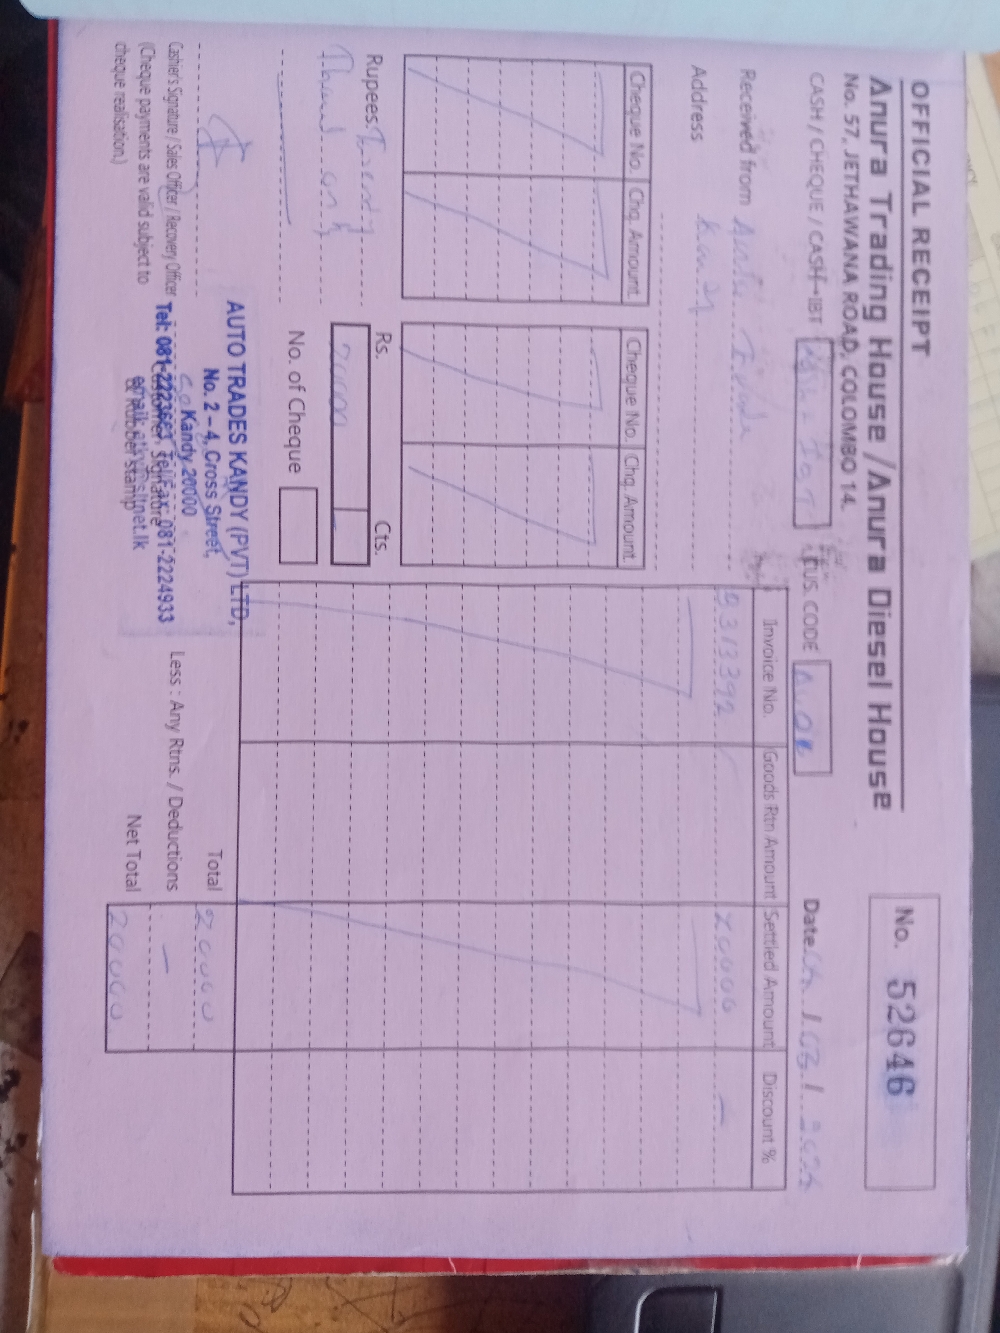 OFFICIAL RECEIPT
No. 52646
Anura Trading House / Anura Diesel House
No. 57, JETHAWANA ROAD, COLOMBO 14.
CASH / CHEQUE / CASH-IBT CUS. CODE Date
Received from
Address Kandy
Invoice No. Goods Rtn Amount Settled Amount Discount %
9313392 20000 -
Cheque No. Chq. Amount Cheque No. Chq. Amount
Rupees Twenty Rs. Cts.
Thousand only 20000
No. of Cheque
AUTO TRADES KANDY (PVT) LTD,
No. 2 - 4, Cross Street,
Kandy 20000
Tel: 081-2223663 Tel/Fax: 081-2224933
Cashier's Signature / Sales Officer / Recovery Officer
Customer Signature
& Rubber Stamp
(Cheque payments are valid subject to
cheque realisation.)
Total 20000
Less : Any Rtns. / Deductions -
Net Total 20000